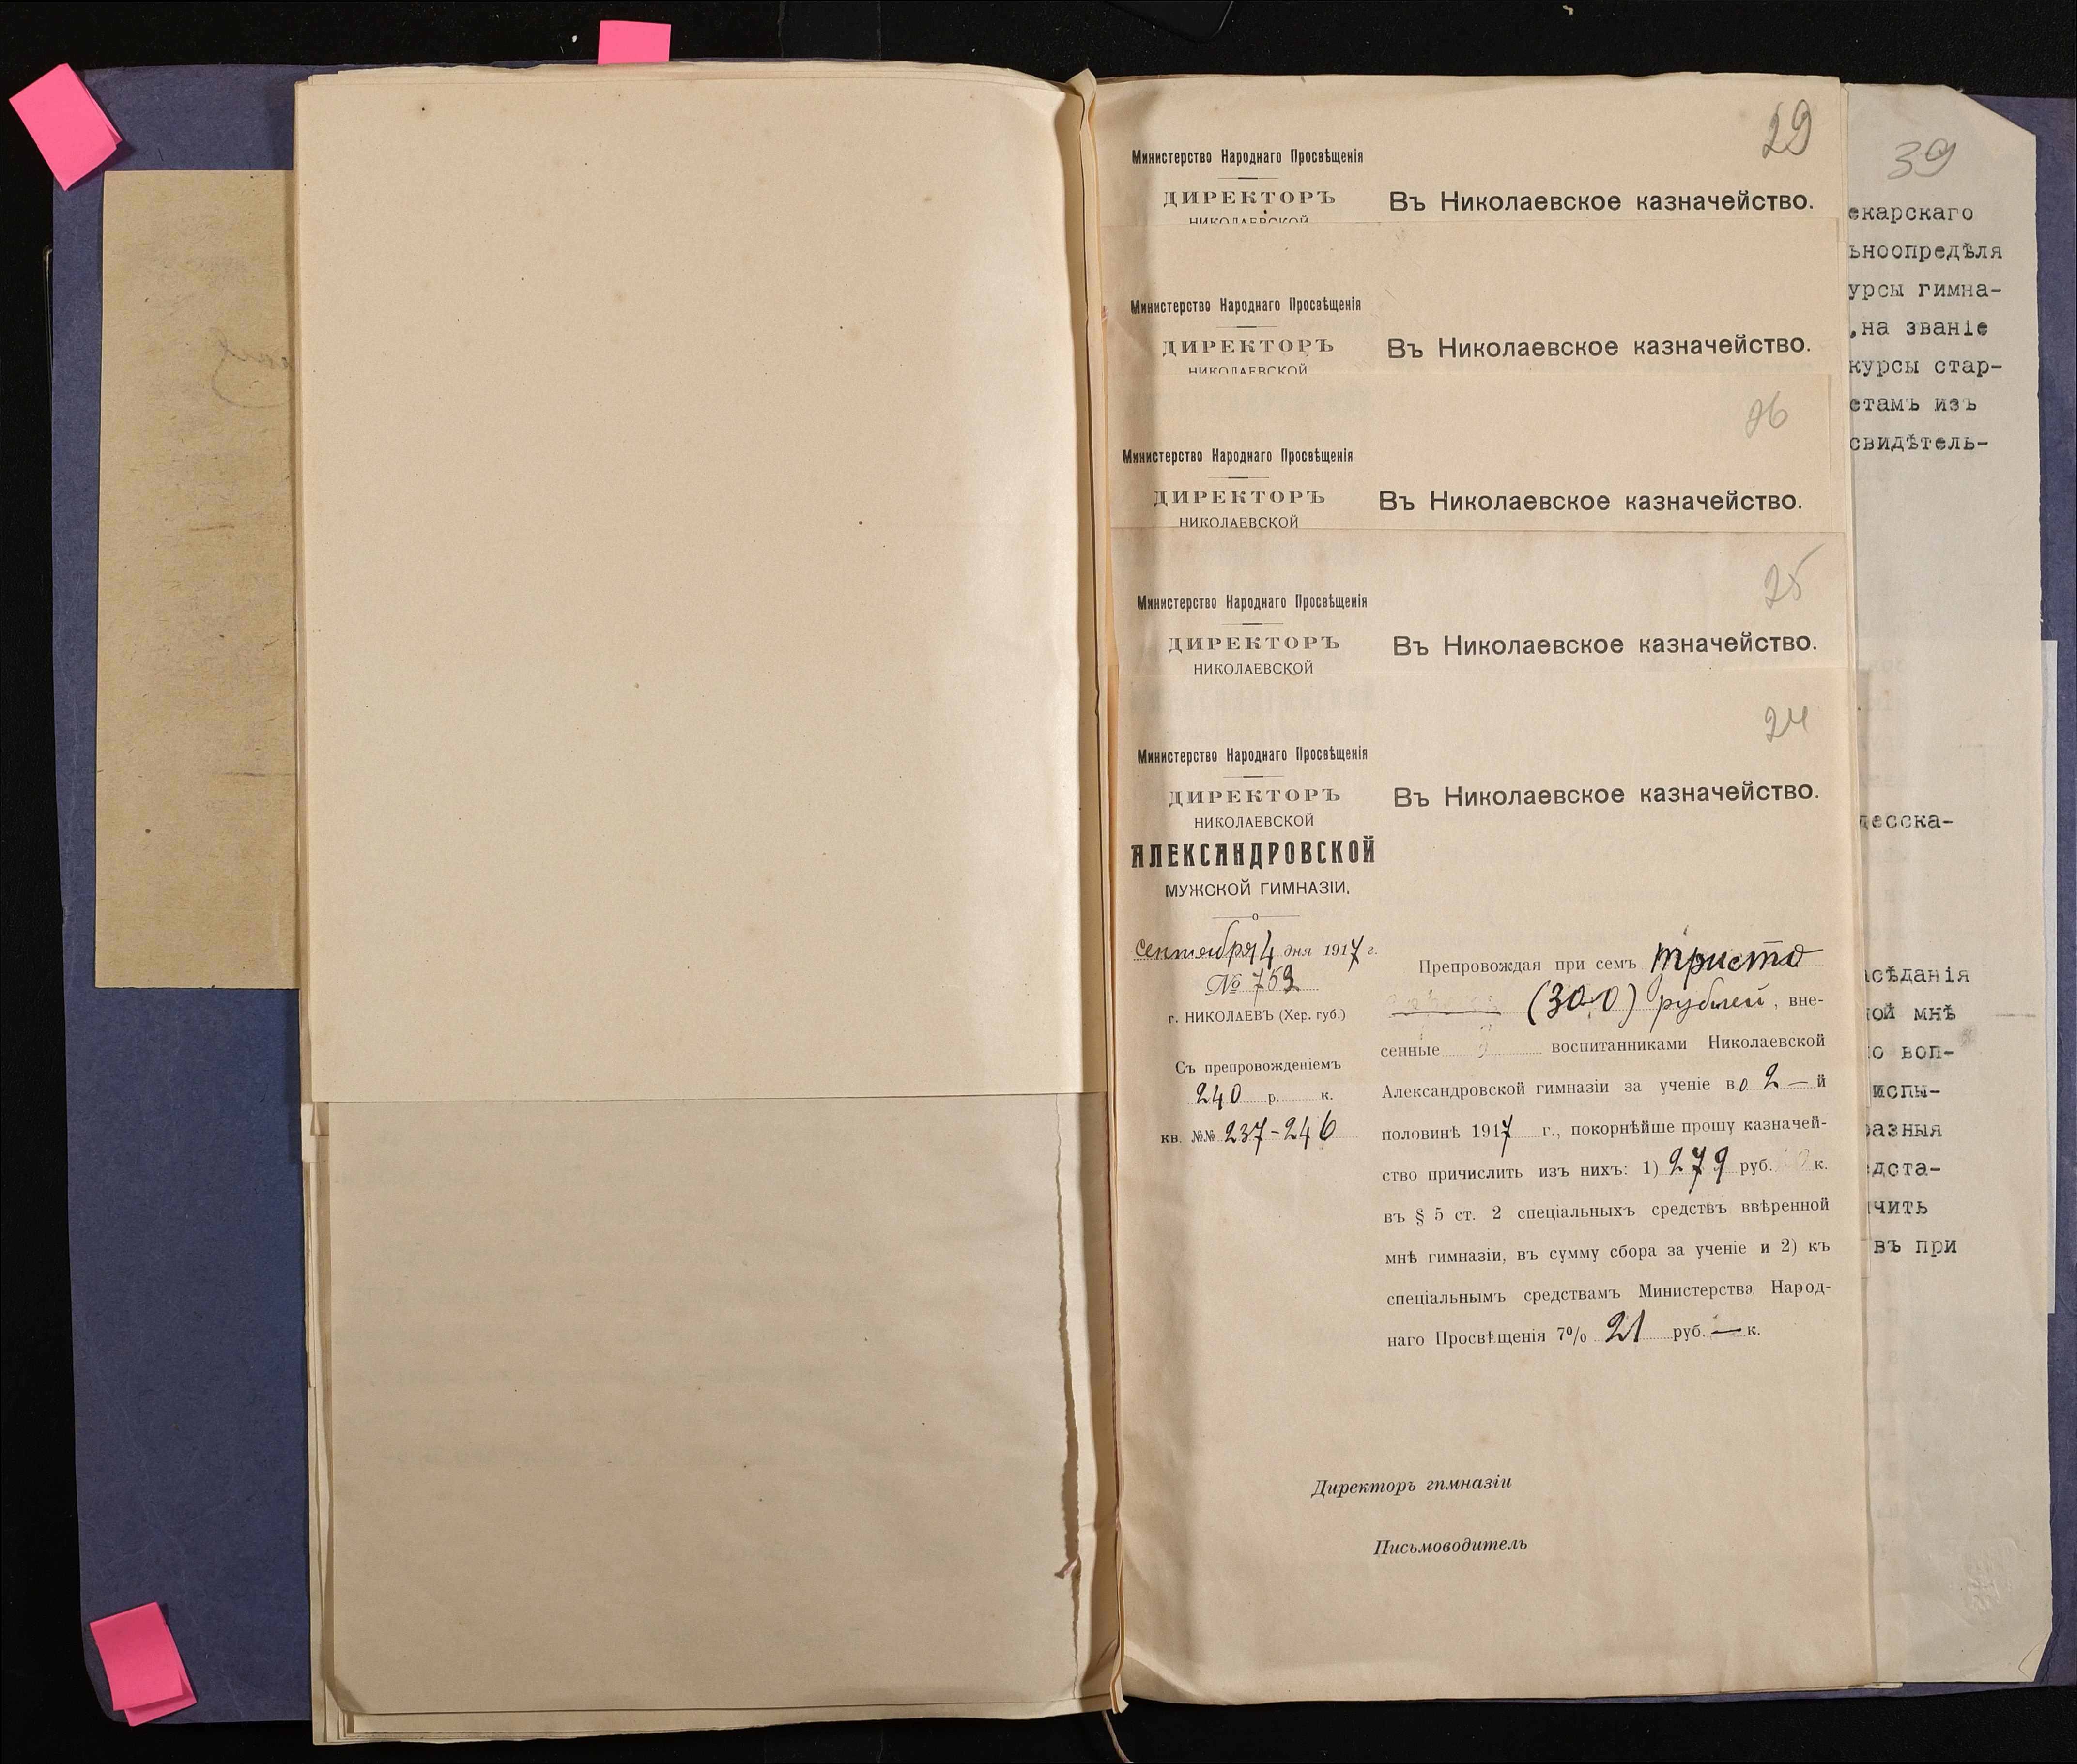 29
Министерство Народнаго Просвѣщенія
ДИРЕКТОРЪ
НИКОЛАЕВСКОЙ
Въ Николаевское казначейство.
Министерство Народнаго Просвѣщенія
ДИРЕКТОРЪ
НИКОЛАЕВСКОЙ
Въ Николаевское казначейство.
26
Министерство Народнаго Просвѣщенія
ДИРЕКТОРЪ
НИКОЛАЕВСКОЙ
Въ Николаевское казначейство.
25
Министерство Народнаго Просвѣщенія
ДИРЕКТОРЪ
НИКОЛАЕВСКОЙ
Въ Николаевское казначейство.
24
Министерство Народнаго Просвѣщенія
ДИРЕКТОРЪ
НИКОЛАЕВСКОЙ
АЛЕКСАНДРОВСКОЙ
МУЖСКОЙ ГИМНАЗІИ.
сентября 4 дня 1917 г.
№ 753
г. НИКОЛАЕВЪ (Хер. губ.)
Съ препровожденіемъ
240 р. к.
кв. №№ 237-246
Въ Николаевское казначейство.
Препровождая при семъ триста
(300) рублей, вне-
сенные воспитанниками Николаевской
Александровской гимназіи за ученіе во 2 — й
половинѣ 1917 г., покорнѣйше прошу казначей-
ство причислить изъ нихъ: 1) 279 руб. к.
въ § 5 ст. 2 спеціальныхъ средствъ ввѣренной
мнѣ гимназіи, въ сумму сбора за ученіе и 2) къ
спеціальнымъ средствамъ Министерства Народ-
наго Просвѣщенія 7% 21 руб. — к.
Директоръ гимназіи
Письмоводитель
39
екарскаго
ьноопредѣля
урсы гимна-
,на званіе
курсы стар-
етамъ изъ
свидѣтель-
десска-
асѣданія
ой мнѣ
о воп-
испы-
разныя
едста-
чить
въ при